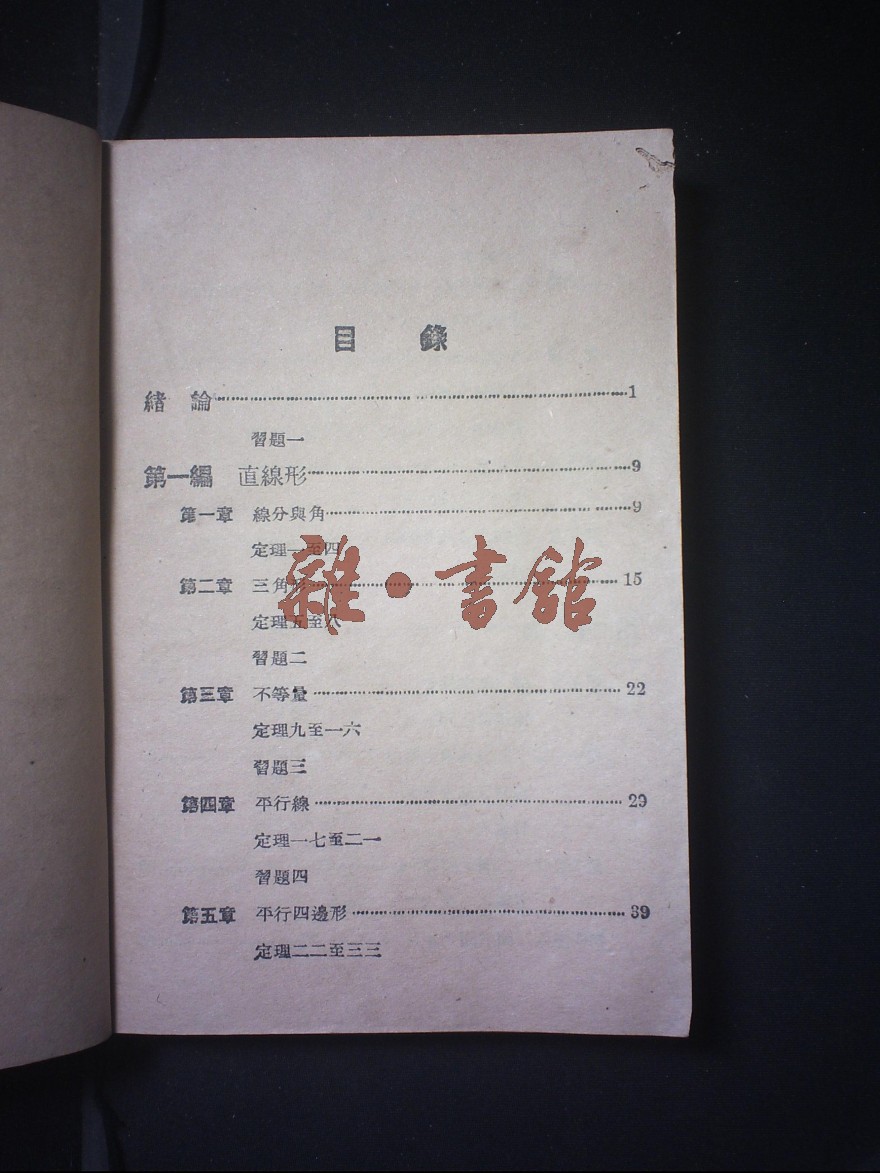 目 錄
緒 論 1
習題一
第一編 直線形 9
第一章 線分與角 9
定理一至四
第二章 三角形 15
定理五至八
習題二
第三章 不等量 22
定理九至一六
習題三
第四章 平行線 29
定理一七至二一
習題四
第五章 平行四邊形 39
定理二二至三三
雜·書館